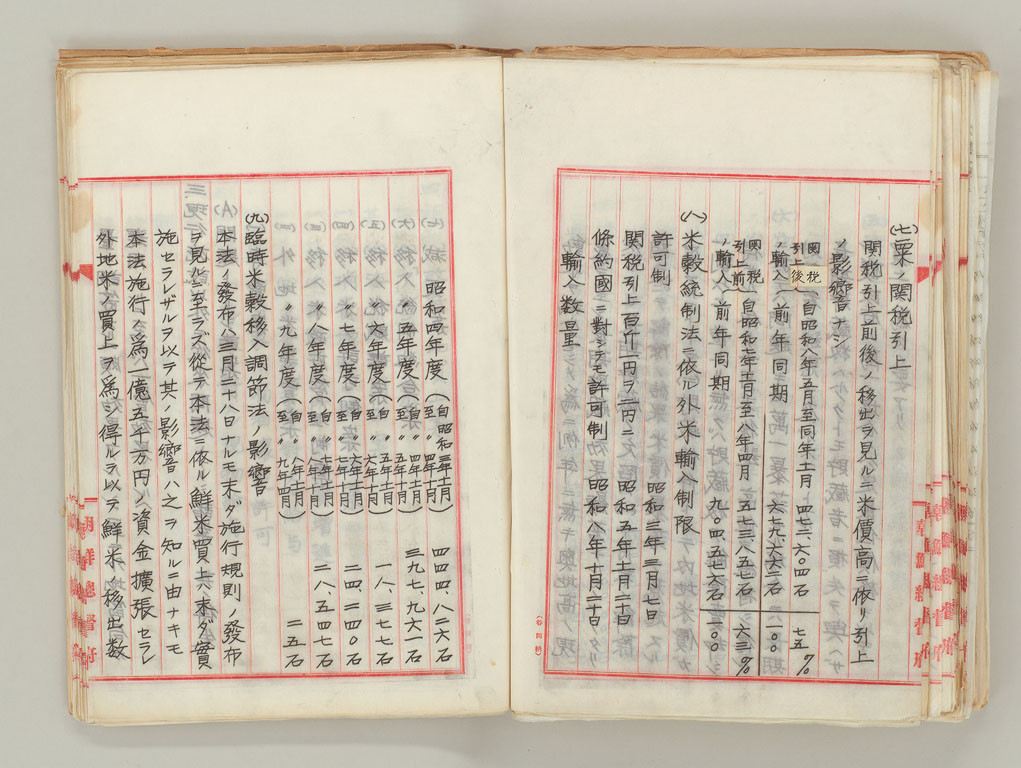 (七)粟ノ関税引上
関税引上前後ノ移出ヲ見ルニ米價高ニ依リ引上
ノ影響ナシ
関税引上後(自昭和八年五月至同年十月 四七三、六〇四石 七五%
ノ輸入(前年同期 六七九、六六二石 一〇〇
関税引上前(自昭和七年十月至八年四月 五七三、八五七石 六三%
ノ輸入(前年同期 九〇四、五七六石 一〇〇
(八)米穀統制法ニ依ル外米輸入制限
許可制 昭和三年三月七日
関税引上百斤一円ヲ二円ニ 昭和五年十一月二十日
條約國ニ對シテモ許可制 昭和八年十一月二十日
輸入数量
昭和四年度(自昭和三年十一月至〃四年十月) 四四四、八二六石
〃五年度(自〃四年十一月至〃五年十月) 三九七、九六一石
〃六年度(自〃五年十一月至〃六年十月) 一八、三七七石
〃七年度(自〃六年十一月至〃七年十月) 二四、二四〇石
〃八年度(自〃七年十一月至〃八年十月) 二八、五四七石
〃九年度(自〃八年十一月至〃九年四月) 二五石
(九)臨時米穀移入調節法ノ影響
本法ノ發布ハ三月二十八日ナルモ末ダ施行規則ノ發布
ヲ見ルニ至ラズ從テ本法ニ依ル鮮米買上ハ末ダ實
施セラレザルヲ以テ其ノ影響ハ之ヲ知ルニ由ナキモ
本法施行ノ爲一億五千万円ノ資金擴張セラレ
外地米ノ買上ヲ爲シ得ルヲ以テ鮮米ノ移出数
朝鮮總督府